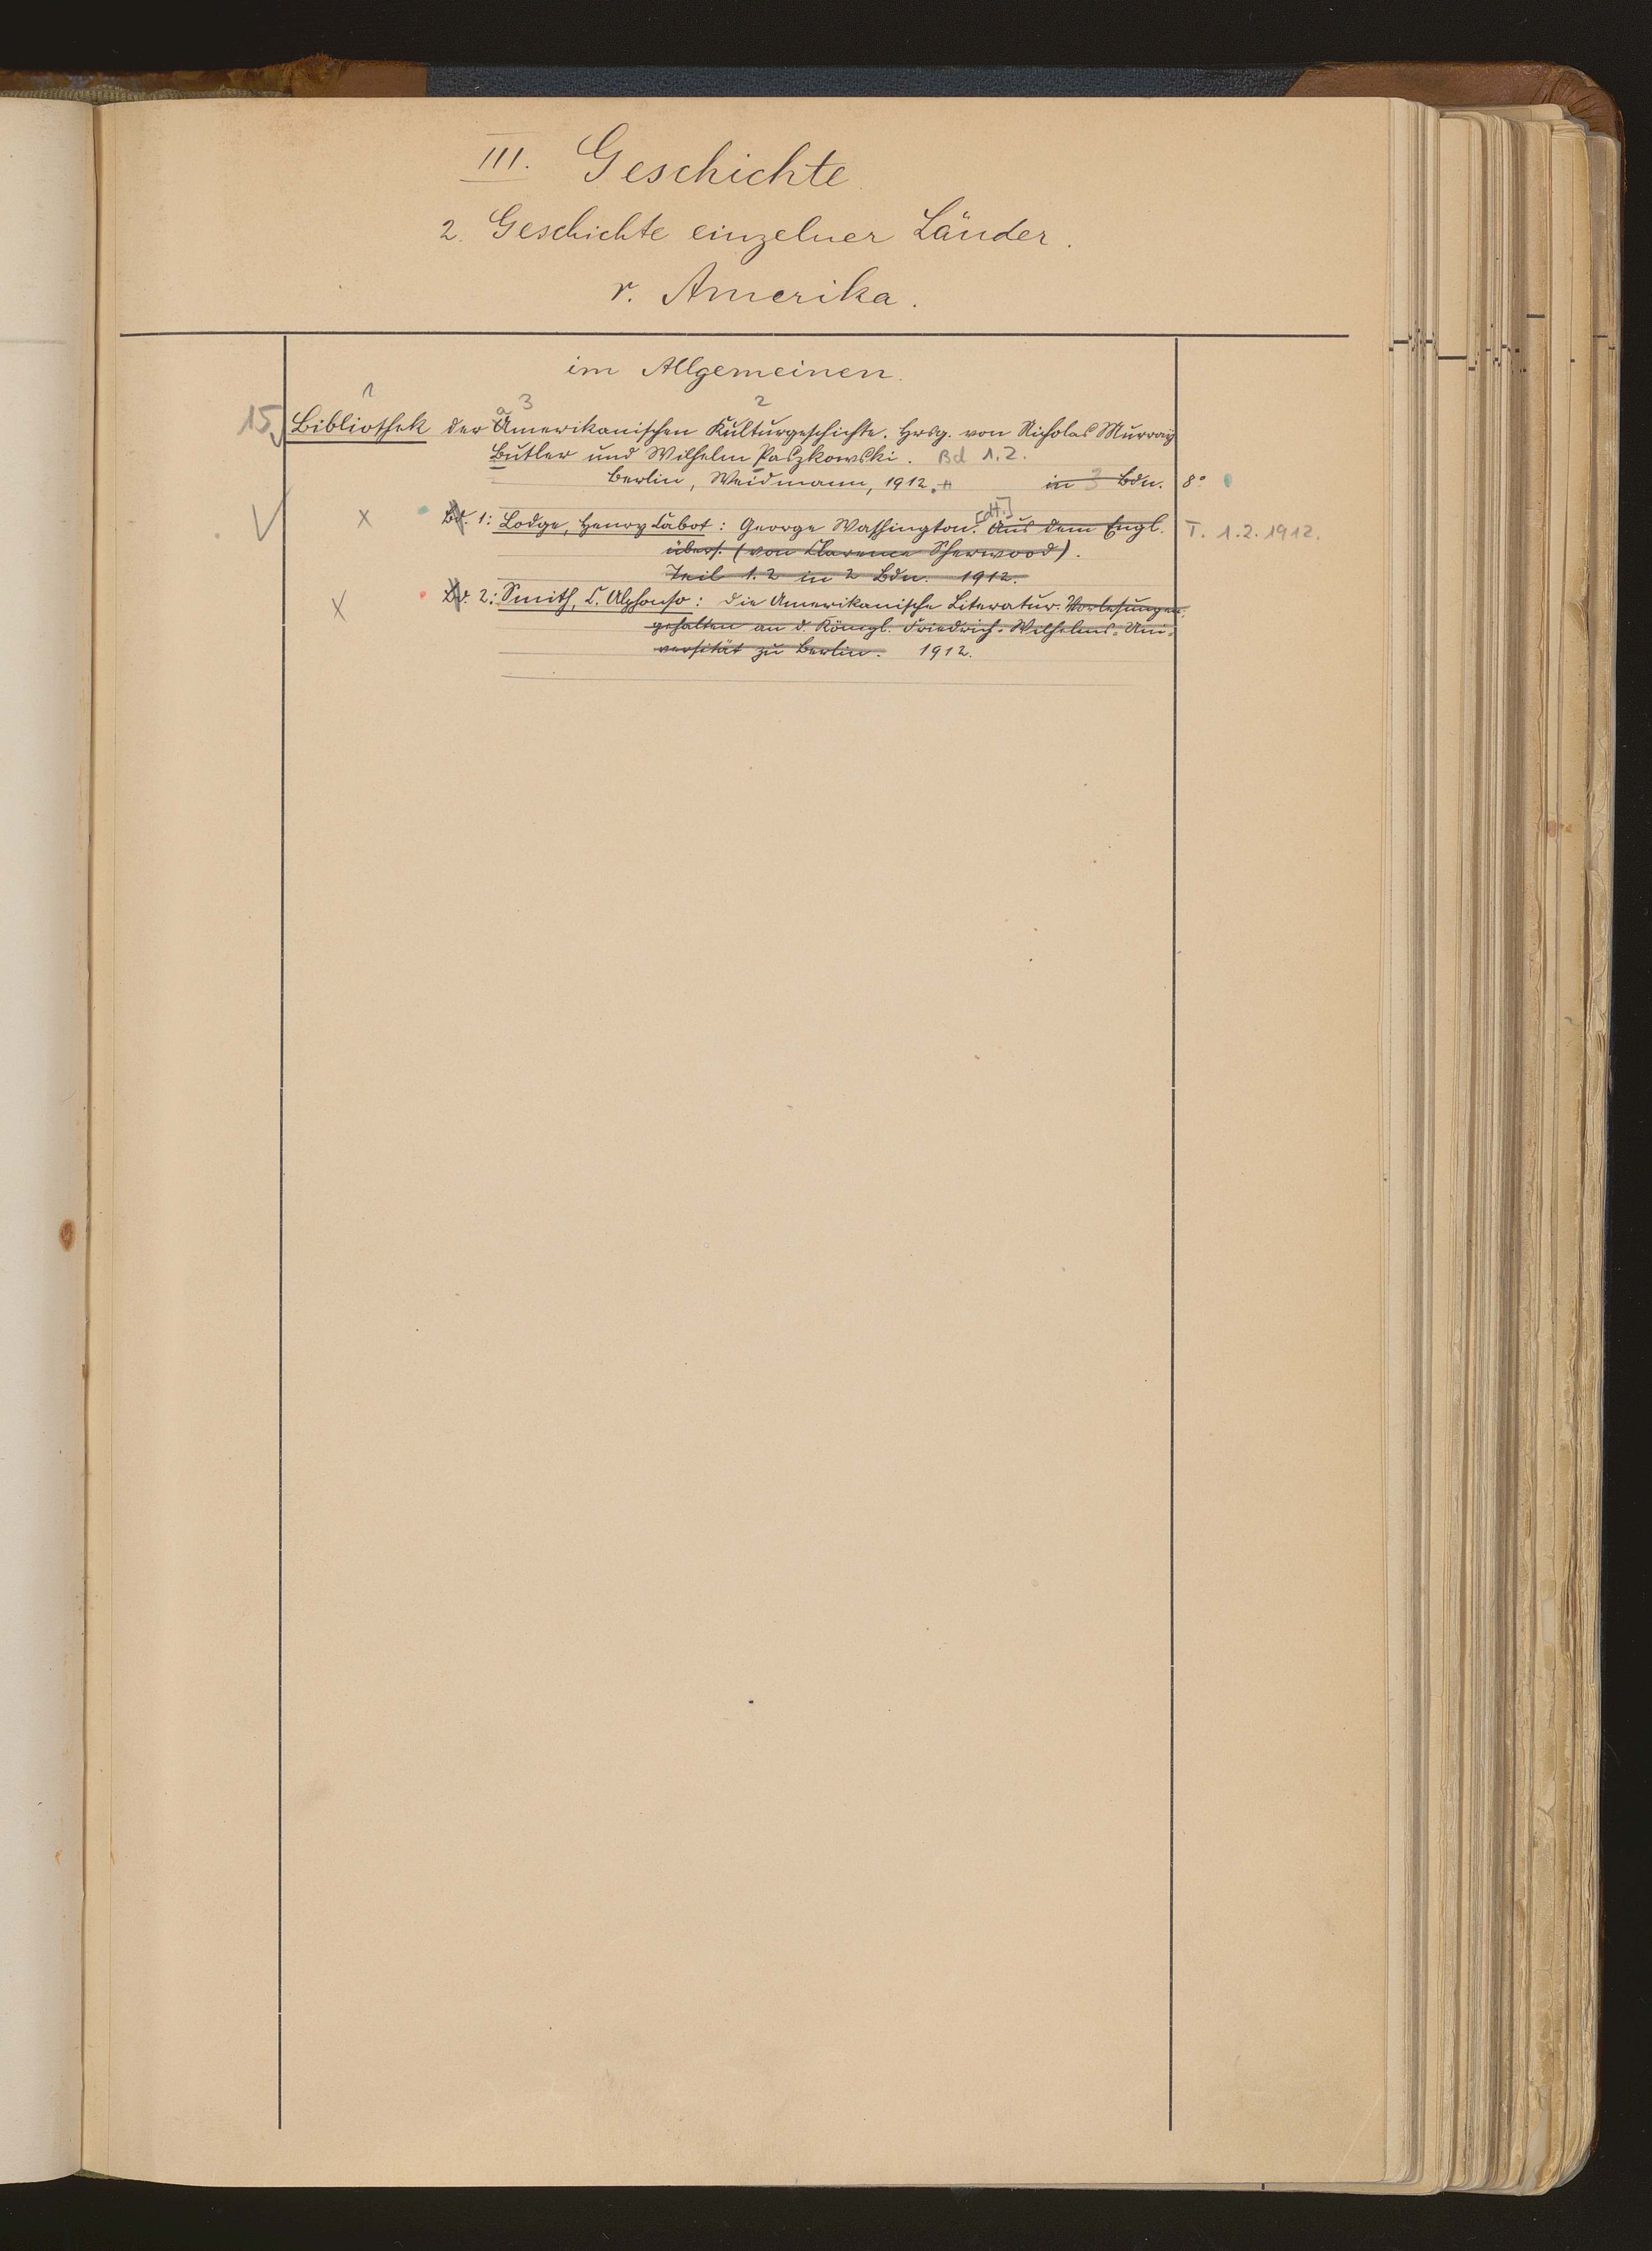 III. Geschichte
2. Geschichte einzelner Länder.
r. Amerika.
im Allgemeinen.
1 3 2
15 Bibliothek der Amerikanischen Kulturgeschichte. Hrsg. von Nicholas Murray
Butler und Wilhelm Paszkowski. Bd 1.2.
Berlin, Weidmann, 1912. in 3 Bdn. 8°
[dt.]
x Bd. 1: Lodge, Henry Cabot: George Washington. Aus dem Engl. T. 1.2. 1912.
übers. (von Clarence Sherwood).
Teil 1.2 in 2 Bdn. 1912.
x Bd. 2: Smith, C. Alphonso: Die Amerikanische Literatur. Vorlesungen,
gehalten an d. Königl. Friedrich-Wilhelms-Uni-
versität zu Berlin. 1912.